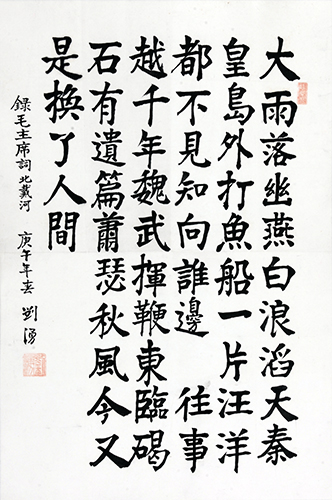 大雨落幽燕白浪滔天秦
皇島外打魚船一片汪洋
都不見知向誰邊 往事
越千年魏武揮鞭東臨碣
石有遺篇蕭瑟秋風今又
是換了人間
錄毛主席詞北戴河 庚午年春 劉湧